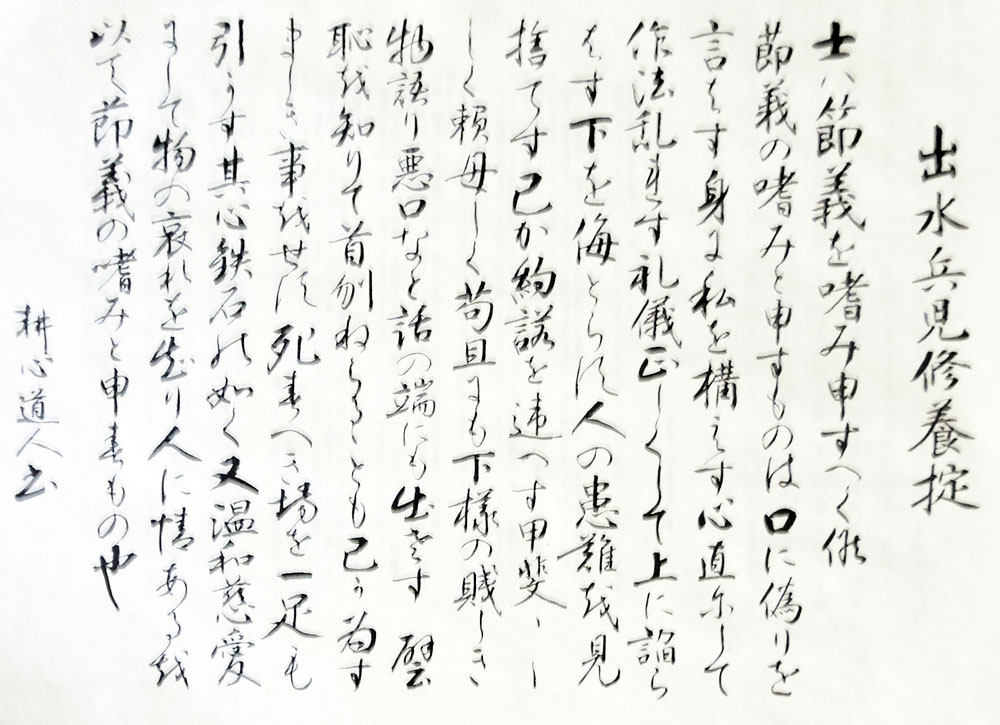 出水兵児修養掟
士ハ節義を嗜み申すへく候
節義の嗜みと申すものは口に偽りを
言はす身に私を構えす心直尓して
作法乱れす礼儀正しくして上に諂ら
はす下を侮とらす人の患難を見
捨てす己か約諾を違へす甲斐〱し
しく頼母しく苟且にも下様の賤しき
物語り悪口なと話の端にも出さす譬
恥を知りて首刎ねらるゝとも己か為す
ましき事をせす死すへき場を一足も
引かす其心鉄石の如く又温和慈愛
にして物の哀れを知り人に情あるを
以て節義の嗜みと申すもの也
耕心道人書